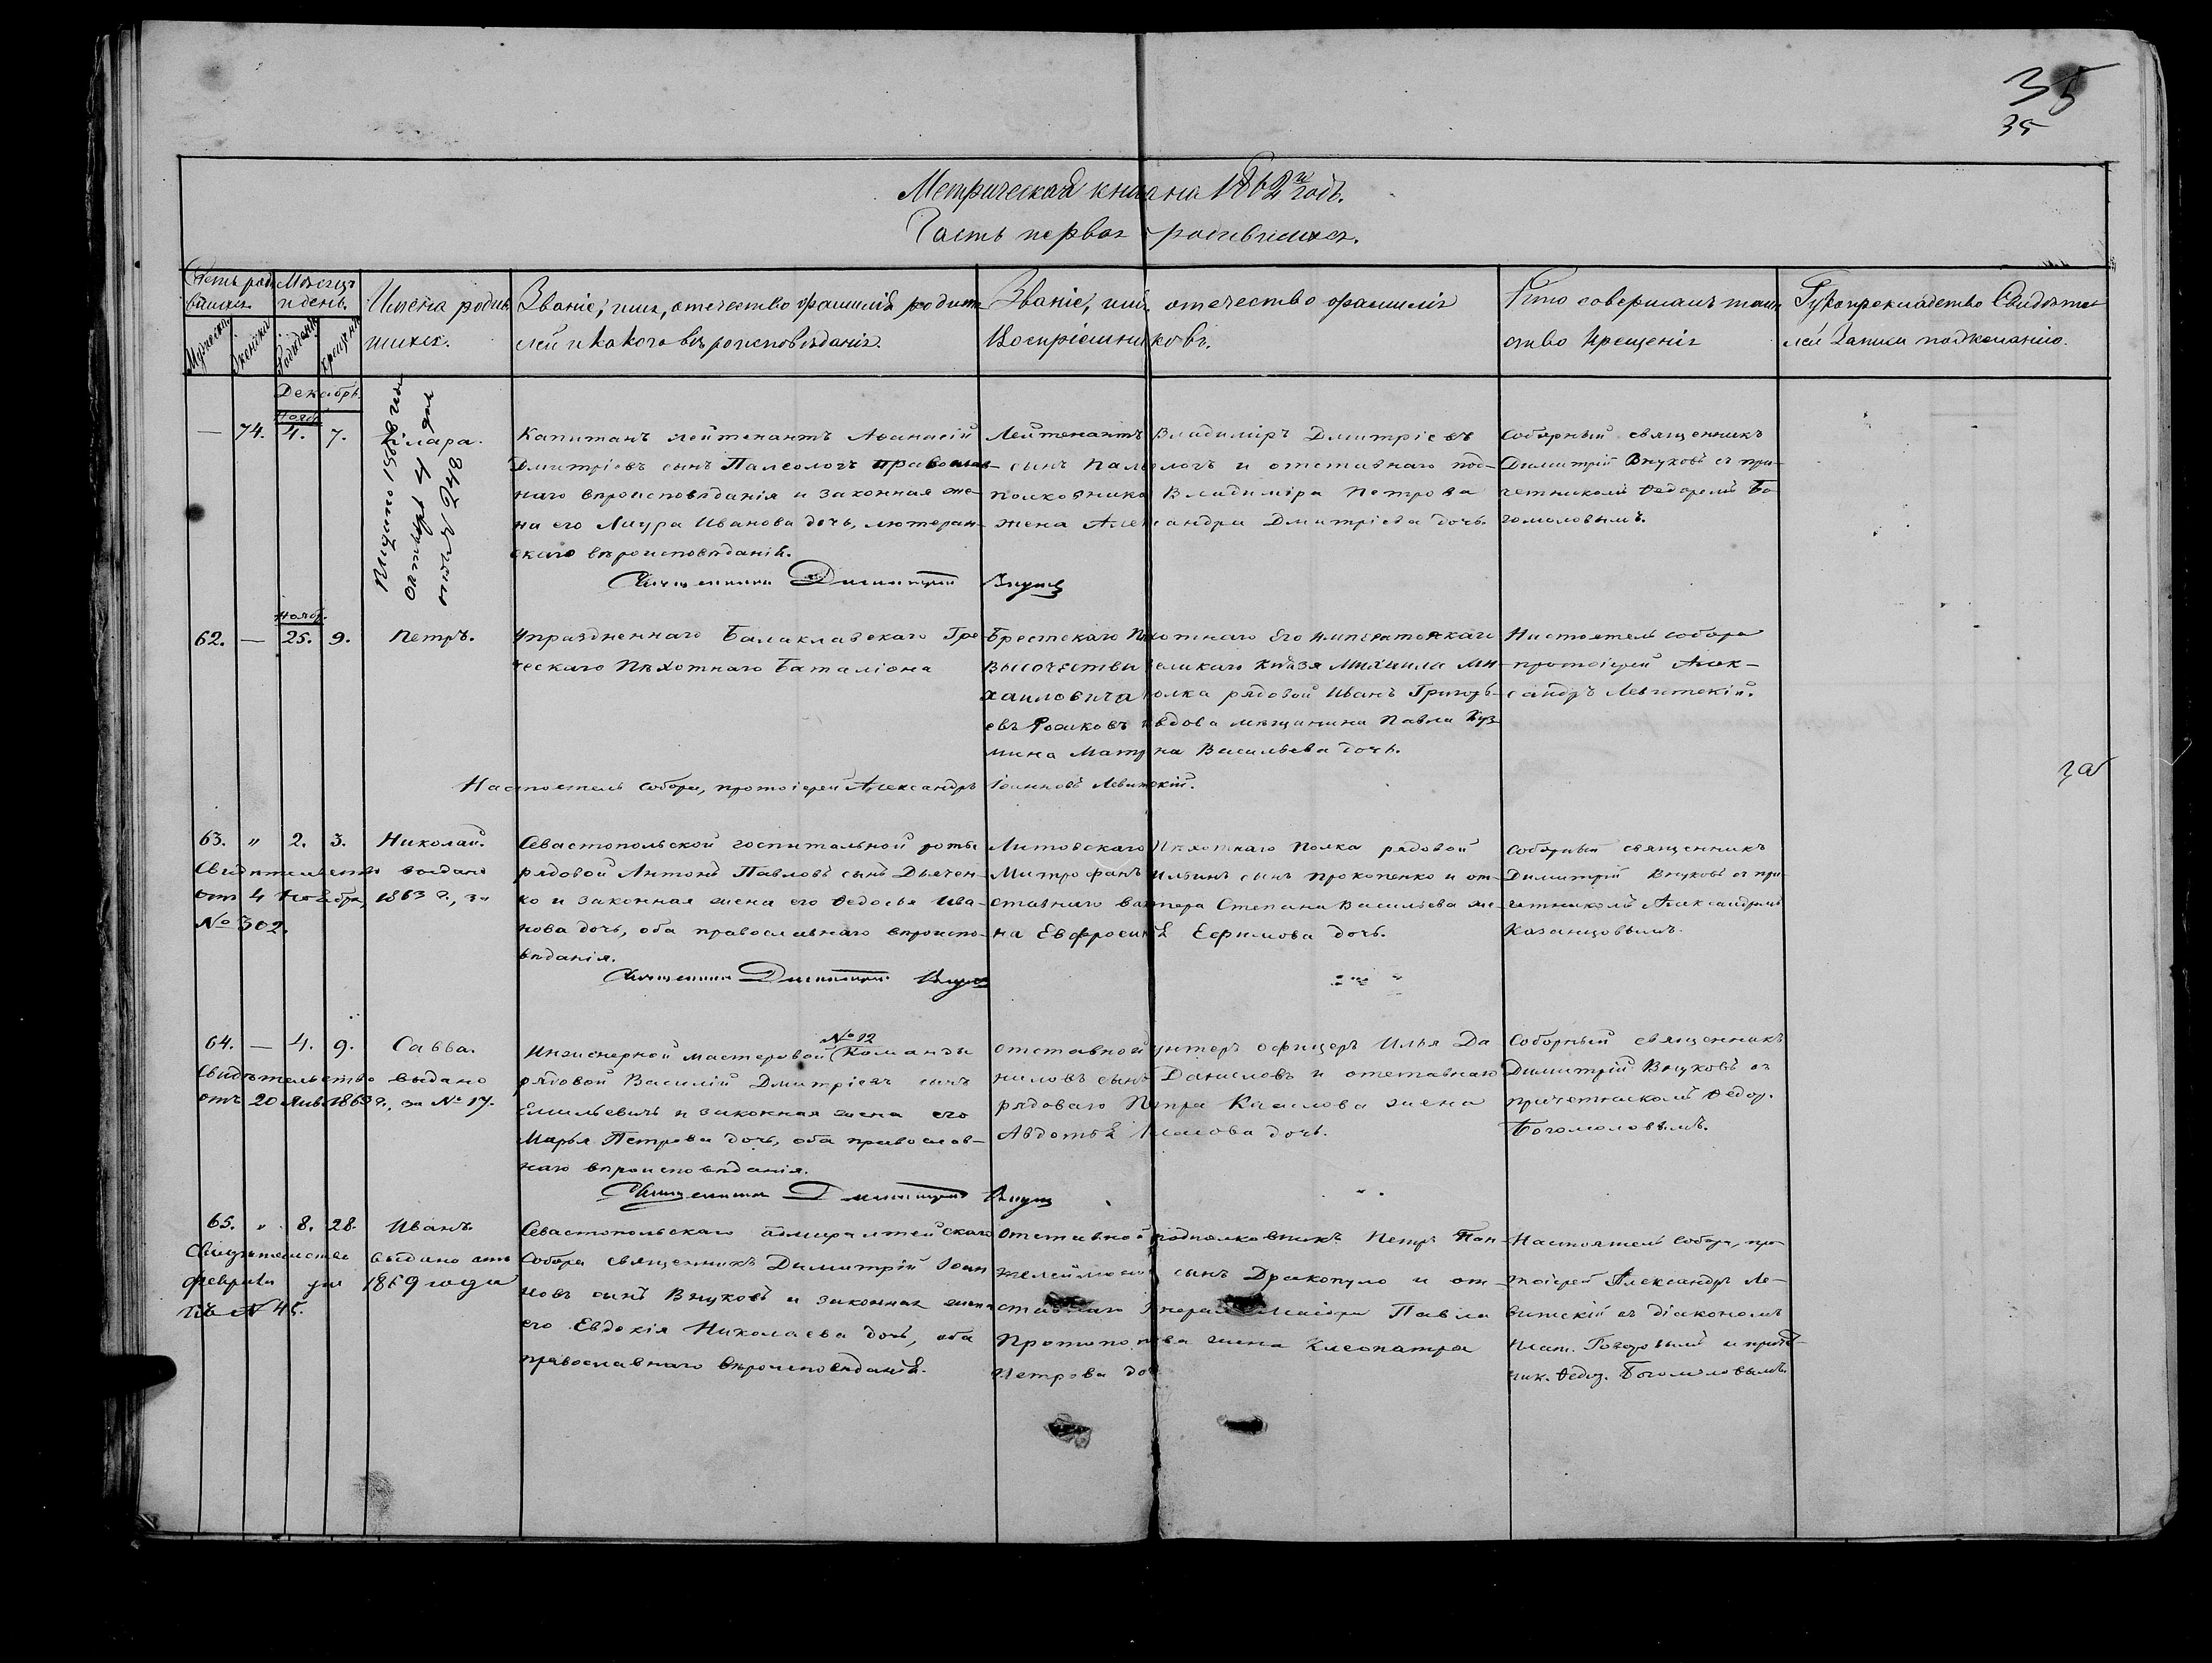 35
35
Метрическая книга на 1862й годъ.
Часть первая о родившихся.
Счетъ родившихся.
Мужеска
Женска
Мѣсяцъ и день.
Рожденія
Крещенія
Имена родившихся.
Званіе, имя, отечество и фамилія родителей и какого вѣроисповѣданія.
Званіе, имя, отечество и фамилія Воспріемниковъ.
Кто совершалъ таинство Крещенія
Рукоприкладство Свидѣтелей записи по желанію.
Декабрь
Нояб.
— 74. 4. 7.
Клара.
№ 248
Капитанъ лейтенантъ Аѳанасій
Дмитріевъ сынъ Палеологъ православ-
наго вѣроисповѣданія и законная же-
на его Лаура Иванова дочь, лютеран-
скаго вѣроисповѣданія.
Лейтенантъ Владиміръ Дмитріевъ
сынъ Палеологъ и отставнаго под-
полковника Владиміра Петрова
жена Александра Дмитріева дочь.
Соборный священникъ
Димитрій Внуковъ съ при-
четникомъ Ѳедоромъ Бо-
гомоловымъ.
Священникъ Димитрій Внуковъ
Нояб.
62. — 25. 9. Петръ.
Упраздненнаго Балаклавскаго Гре-
ческаго Пѣхотнаго Баталіона
Брестскаго Пѣхотнаго Его Императорскаго
Высочества Великаго Князя Михаила Ми-
хаиловича полка рядовой Иванъ Григорь-
евъ и вдова мѣщанина Павла Куз-
мина Матрена Васильева дочь.
Настоятель собора
протоіерей Алек-
сандръ Левитскій.
Настоятель собора, протоіерей Александръ Іоанновъ Левитскій.
63. " 2. 3. Николай.
Свидѣтельство выдано
отъ 4 Ноября, 1863 г., за
№ 302.
Севастопольской госпитальной роты
рядовой Антонъ Павловъ сынъ Дьячен-
ко и законная жена его Ѳедосья Ива-
нова дочь, оба православнаго вѣроиспо-
вѣданія.
Литовскаго Пѣхотнаго Полка рядовой
Митрофанъ Ильинъ сынъ Прокопенко и от-
ставнаго вахтера Степана Васильева же-
на Евфросинія Ефимова дочь.
Соборный священникъ
Димитрій Внуковъ съ при-
четникомъ Александромъ
Казанцовымъ.
Священникъ Димитрій Внуковъ
64. — 4. 9. Савва.
Свидѣтельство выдано
отъ 20 Янв. 1863 г., за № 17.
№ 12
Инженерной мастеровой Команды
рядовой Василій Дмитріевъ сынъ
Емильевичъ и законная жена его
Марья Петрова дочь, оба православ-
наго вѣроисповѣданія.
Отставной унтеръ офицеръ Илья Да
ниловъ сынъ Даниловъ и отставнаго
рядоваго Петра жена
Авдотья дочь.
Соборный священникъ
Димитрій Внуковъ съ
причетникомъ Ѳедор.
Богомоловымъ.
Священникъ Димитрій Внуковъ
65. " 8. 28. Иванъ.
Свидѣтельство выдано отъ
Февраля дня 1869 года
за № 45.
Севастопольскаго адмиралтейскаго
Собора священникъ Димитрій Іоан
новъ сынъ Внуковъ и законная жена
его Евдокія Николаева дочь, оба
православнаго вѣроисповѣданія.
Отставной подполковникъ Петръ Пан-
телеймоновъ сынъ Дракопуло и от-
ставнаго Генералъ Маіора Павла
Протопопова жена Клеопатра
Петрова дочь
Настоятель собора, про-
тоіерей Александръ Ле-
витскій съ діакономъ
и причет-
ник. Ѳедор. Богомоловымъ.